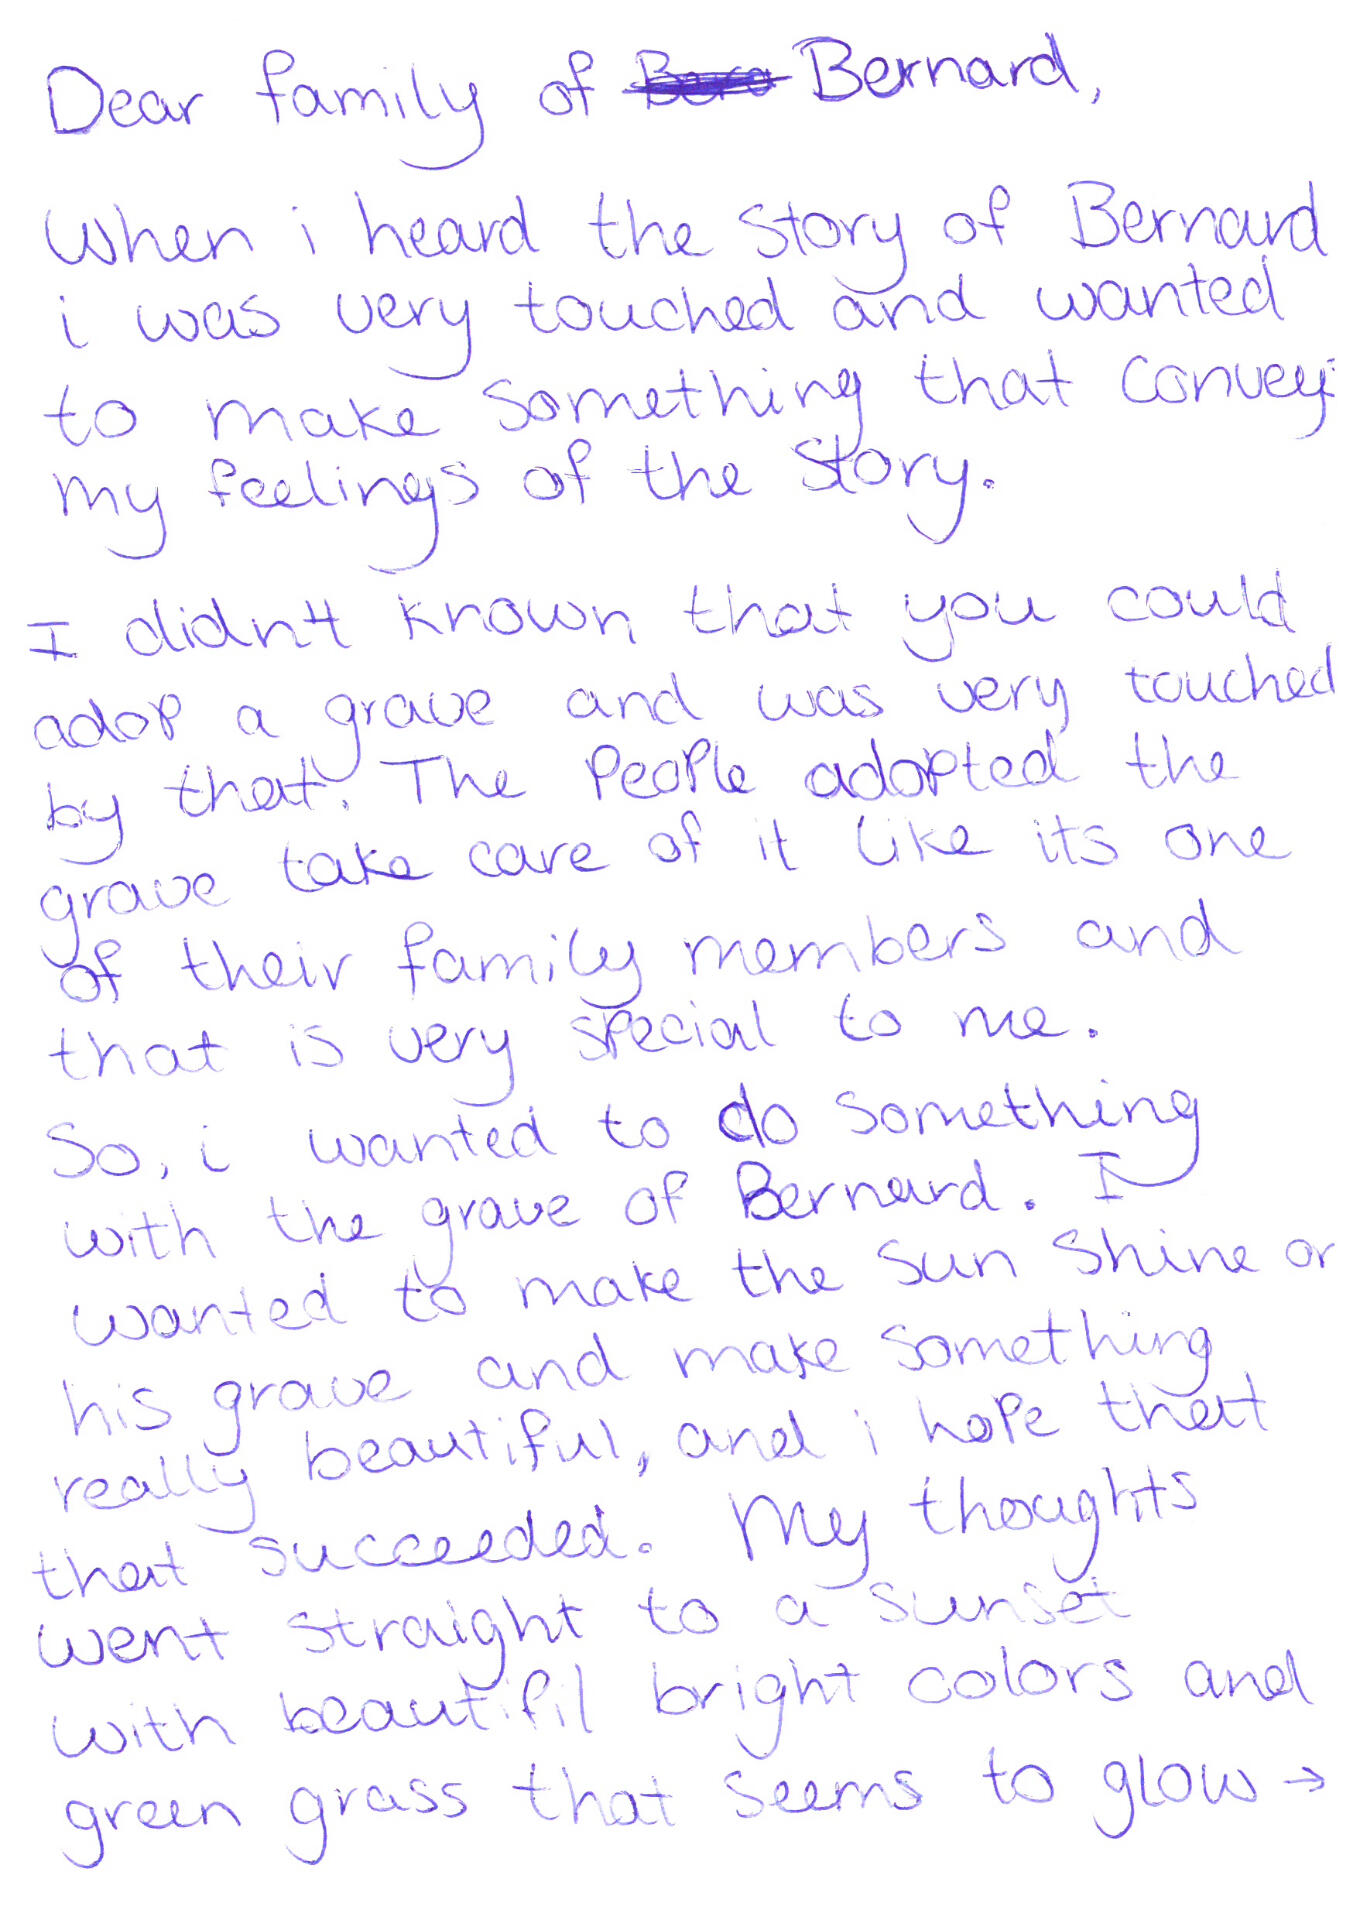 Dear family of Bernard,
When i heard the story of Bernard
i was very touched and wanted
to make something that convey
my feelings of the story.
I didn't known that you could
adop a grave and was very touched
by that. The people adopted the
grave take care of it like its one
of their family members and
that is very special to me.
So, i wanted to do something
with the grave of Bernard. I
wanted to make the sun shine or
his grave and make something
really beautiful, and i hope that
that succeeded. My thoughts
went straight to a sunset
with beautifil bright colors and
green grass that seems to glow →